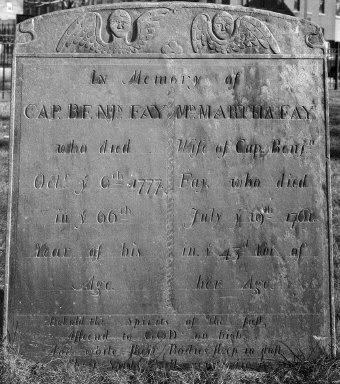 In Memory of
CAP. BENJn. FAY Mrs. MARTHA FAY
who died Wife of Cap. Benjn.
Octr. ye 6th 1777 Fay, who died
In ye 66th July ye 19th
Year of his in ye 43d Yer of
Age. her Age.
Behold the Spirits of the Just,
Ascend to GOD on high,
Their Bodies sleep in dust